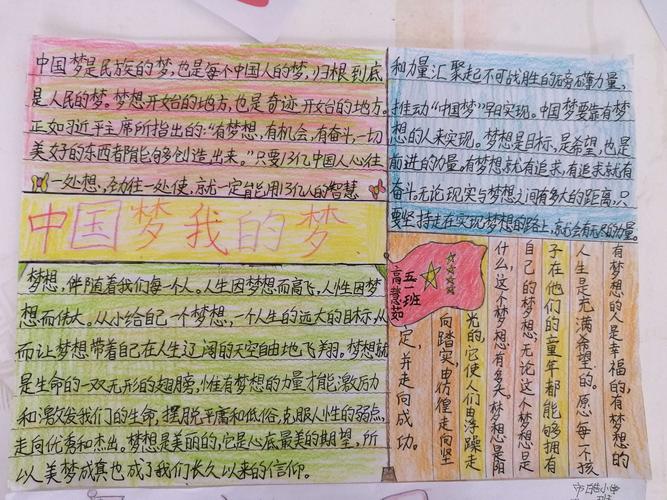 中国梦是民族的梦,也是每个中国人的梦,归根到底
是人民的梦。梦想开始的地方,也是奇迹开始的地方。
正如习近平主席所指出的:“有梦想,有机会,有奋斗,一切
美好的东西都能够创造出来。”只要13亿中国人心往
一处想,劲往一处使,就一定能用13亿人的智慧
和力量汇聚起不可战胜的磅礴力量,
推动“中国梦”早日实现。中国梦要靠有梦
想的人来实现。梦想是目标,是希望,也是
前进的力量。有梦想就有追求,有追求就有
奋斗。无论现实与梦想之间有多大的距离,只
要坚持走在实现梦想的路上,就会有无尽的力量。
中国梦我的梦
梦想,伴随着我们每一个人。人生因梦想而高飞,人性因梦
想而伟大。从小给自己一个梦想,一个人生的远大的目标,从
而让梦想带着自己在人生辽阔的天空自由地飞翔。梦想就
是生命的一双无形的翅膀,惟有梦想的力量才能激发力
和激发我们的生命,摆脱平庸和低俗,克服人性的弱点,
走向优秀和杰出。梦想是美丽的,它是心底最美的期望,所
以美梦成真也成了我们长久以来的信仰。
五一班
高慧茹
有梦想的人是幸福的,有梦想的
人生是充满希望的。愿每一个孩
子在他们的童年都能够拥有
自己的梦想;无论这个梦想是
什么,这个梦想有多大。梦想是阳
光的,它使人们由浮躁走
向踏实,由彷徨走向坚
定,并走向成功。